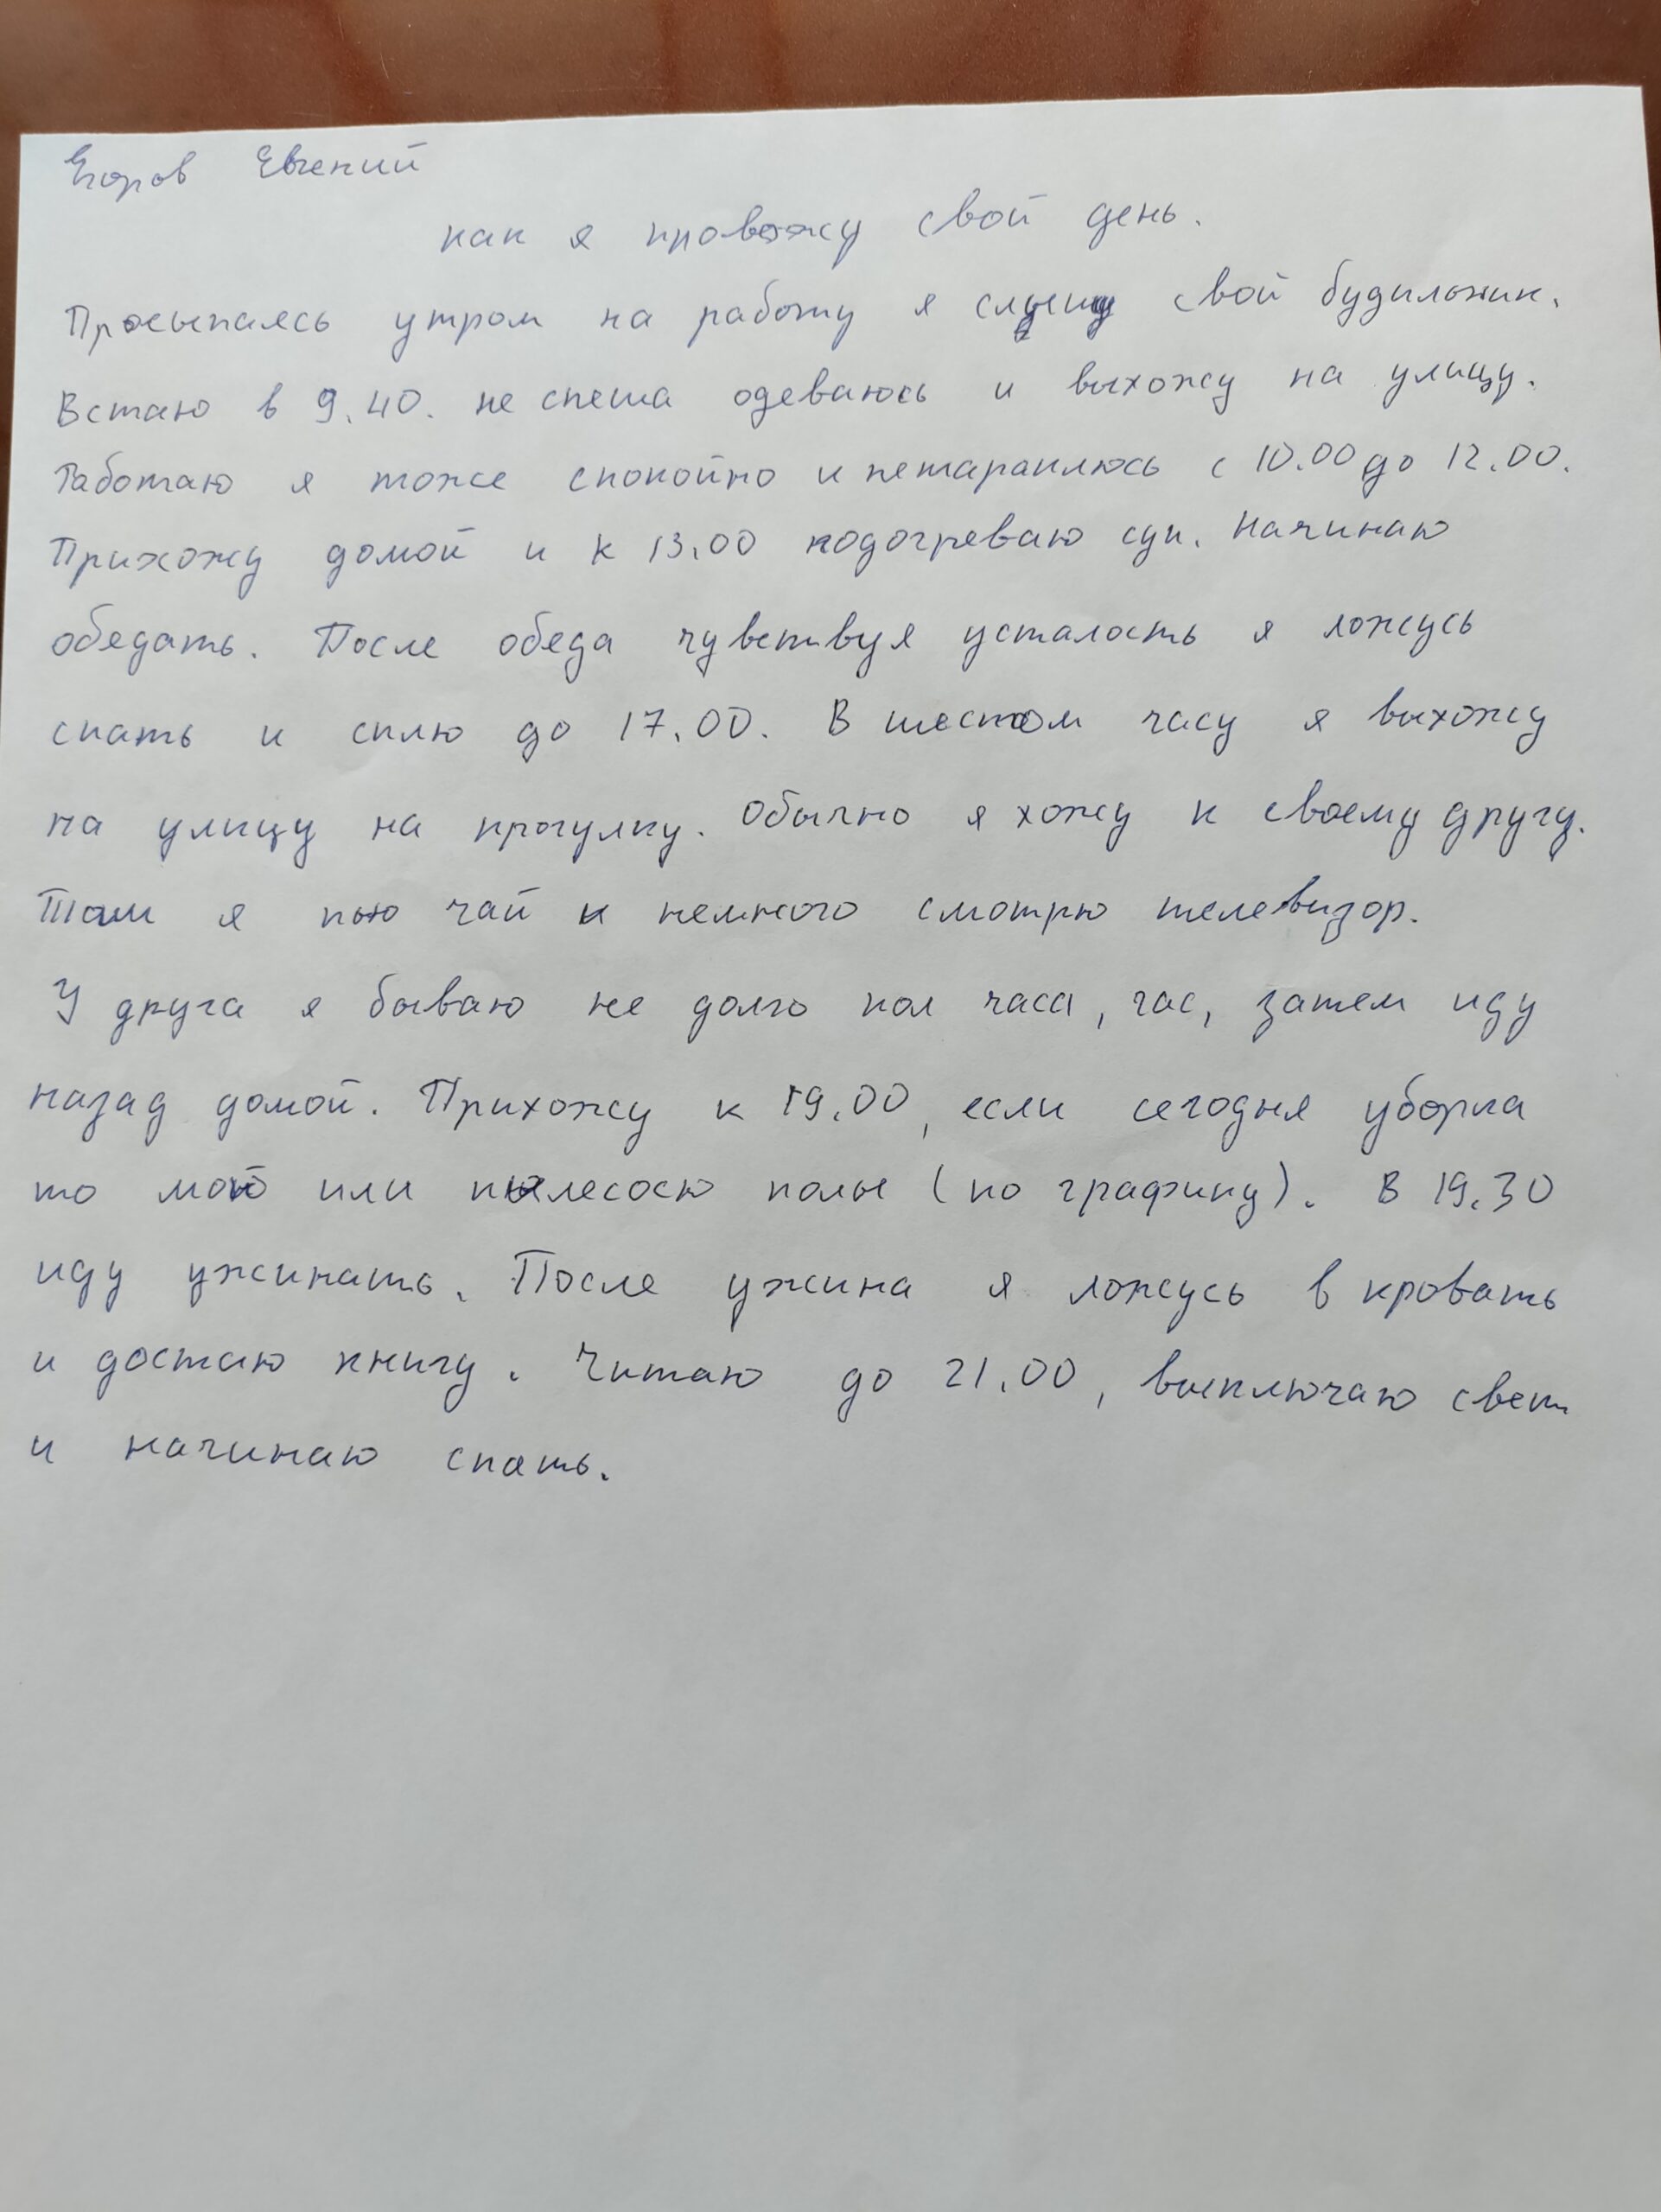 Егоров Евгений
как я провожу свой день.
Просыпаясь утром на работу я слушу свой будильник.
Встаю в 9.40. не спеша одеваюсь и выхожу на улицу.
Работаю я тоже спокойно и нетараплюсь с 10.00 до 12.00.
Прихожу домой и к 13.00 подогреваю суп. Начинаю
обедать. После обеда чувствуя усталость я ложусь
спать и сплю до 17.00. В шестом часу я выхожу
на улицу на прогулку. Обычно я хожу к своему другу.
Там я пью чай и немного смотрю телевизор.
У друга я бываю не долго пол часа, час, затем иду
назад домой. Прихожу к 19.00, если сегодня уборка
то мою или пылесосю полы (по графику). В 19.30
иду ужинать. После ужина я ложусь в кровать
и достаю книгу. Читаю до 21.00, выключаю свет
и начинаю спать.